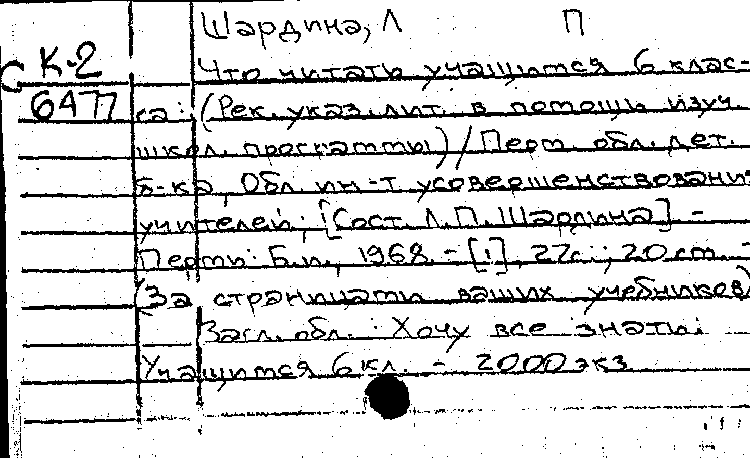 Шардина, Л П
К-2
Что читать учащимся 6 клас-
6477
са: (Рек. указ. лит. в помощь изуч.
школ. программы) / Перм. обл. дет.
б-ка, Обл. ин-т усовершенствования
учителей; [Сост. Л.П. Шардина] -
Пермь: Б.и., 1968. - [1], 27с.; 20 см. -
(За страницами ваших учебников)
Загл. обл.: Хочу все знать!
Учащимся 6 кл. - 2000 экз